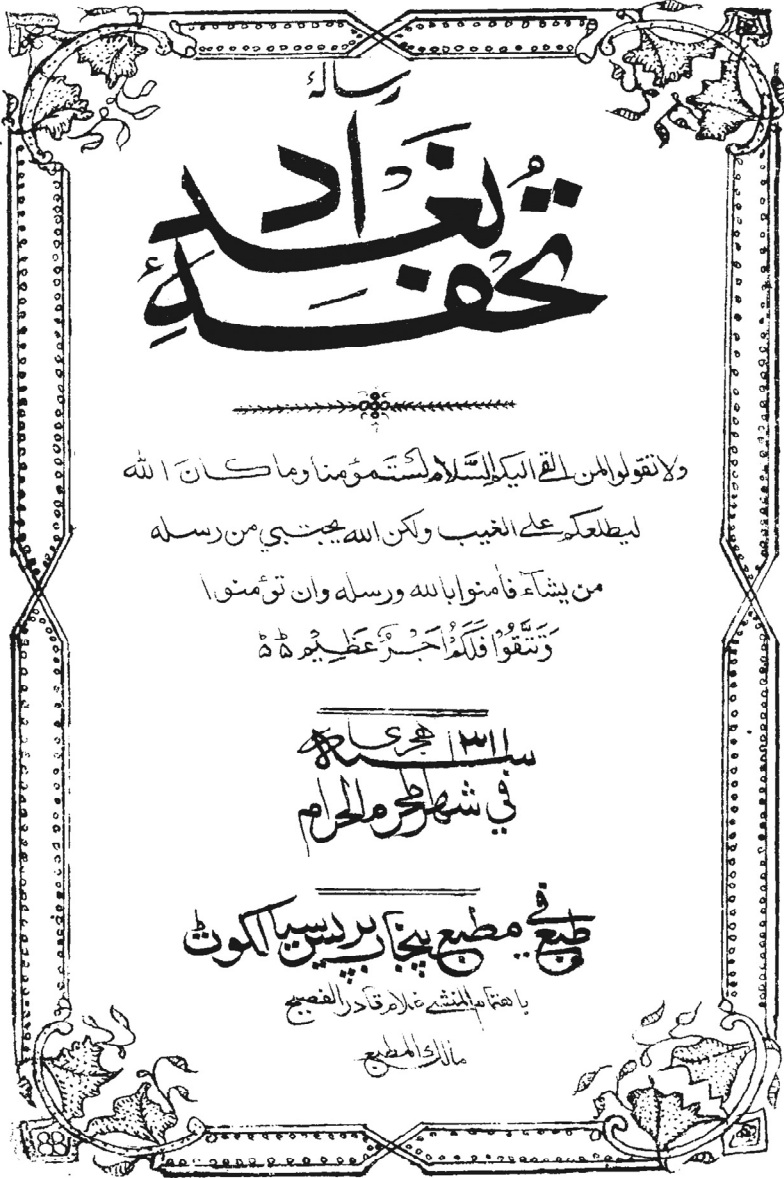 رسالۂ
تحفۂ بغداد
ولا تقولوا لمن القى اليكم السَّلام لَسْتَ مؤمنا وما كان الله
ليطلعكم على الغيب ولكن الله يجتبي من رسله
من يشاء فاٰمنوا بالله ورسله وان تؤمنوا
وَتَتَّقُوْا فَلَكُمْ اَجْرٌ عَظِيْمٌ
سنہ ١٣١١ هجری
في شهر المحرم الحرام
طبع في مطبع پنجاب پریس سیالکوٹ
باهتمام المنشي غلام قادر الفصيح
مالك المطبع